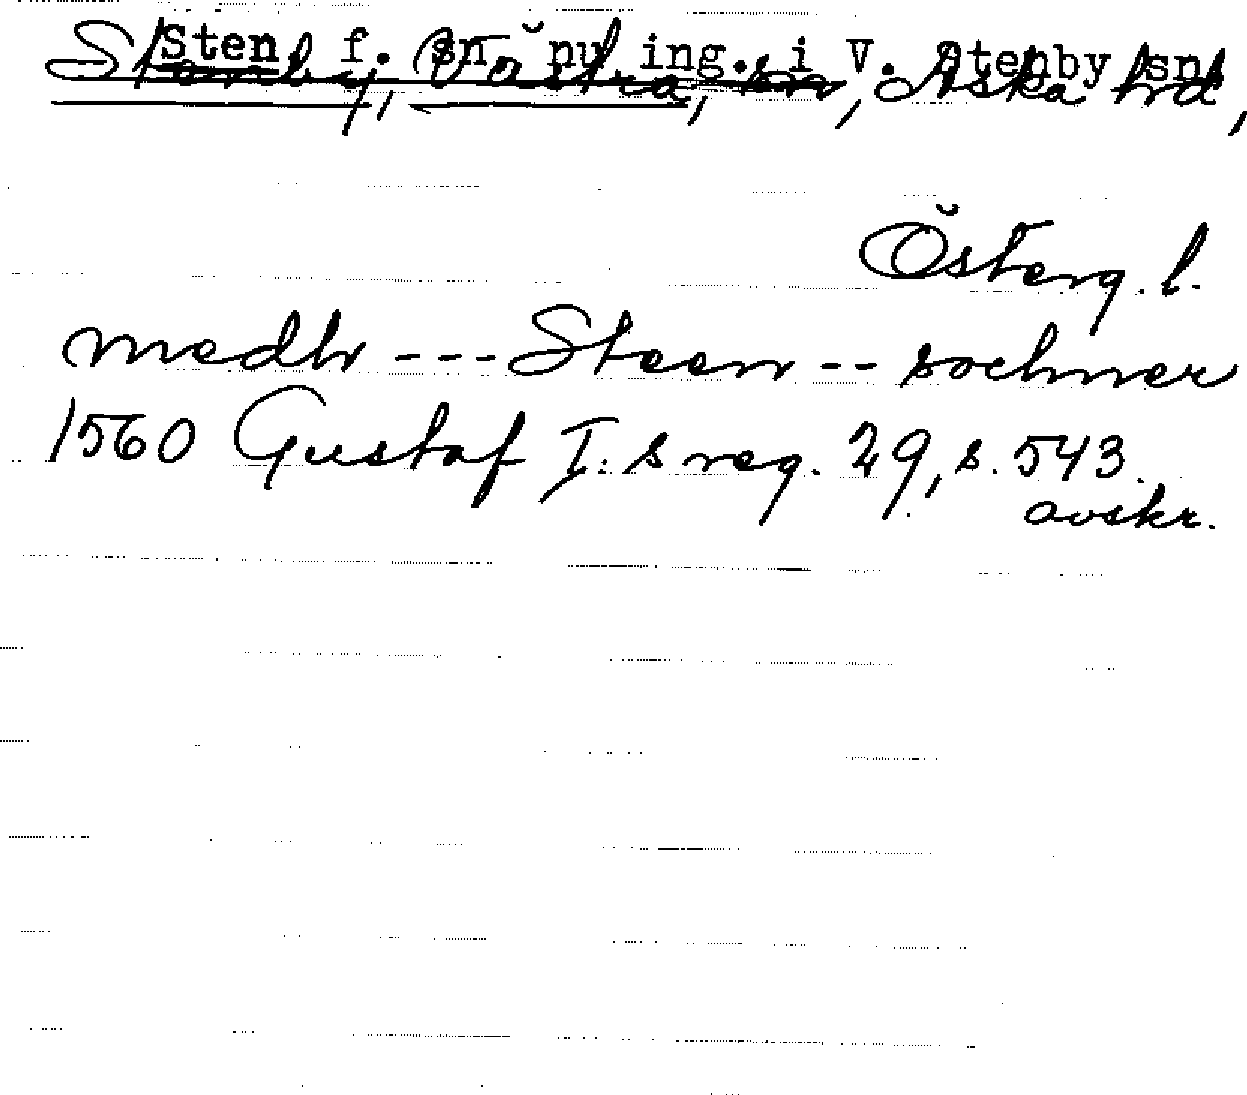 Sten f. sn nu ing. i V. Stenby sn
Stenby, Västra, sn, Aska hd,
Österg. l.
medh --- Steen -- sochner
1560 Gustaf I:s reg. 29, s. 543.
avskr.